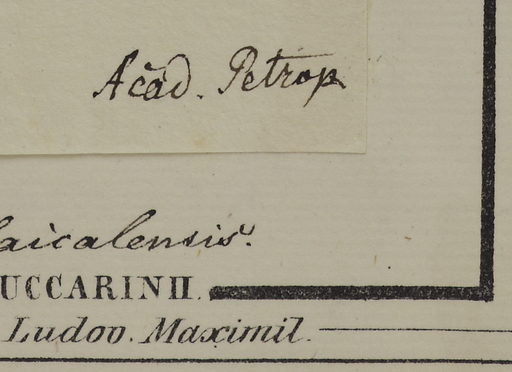 Acad. Petrop
aicalensis.
UCCARINII.
Ludov. Maximil.